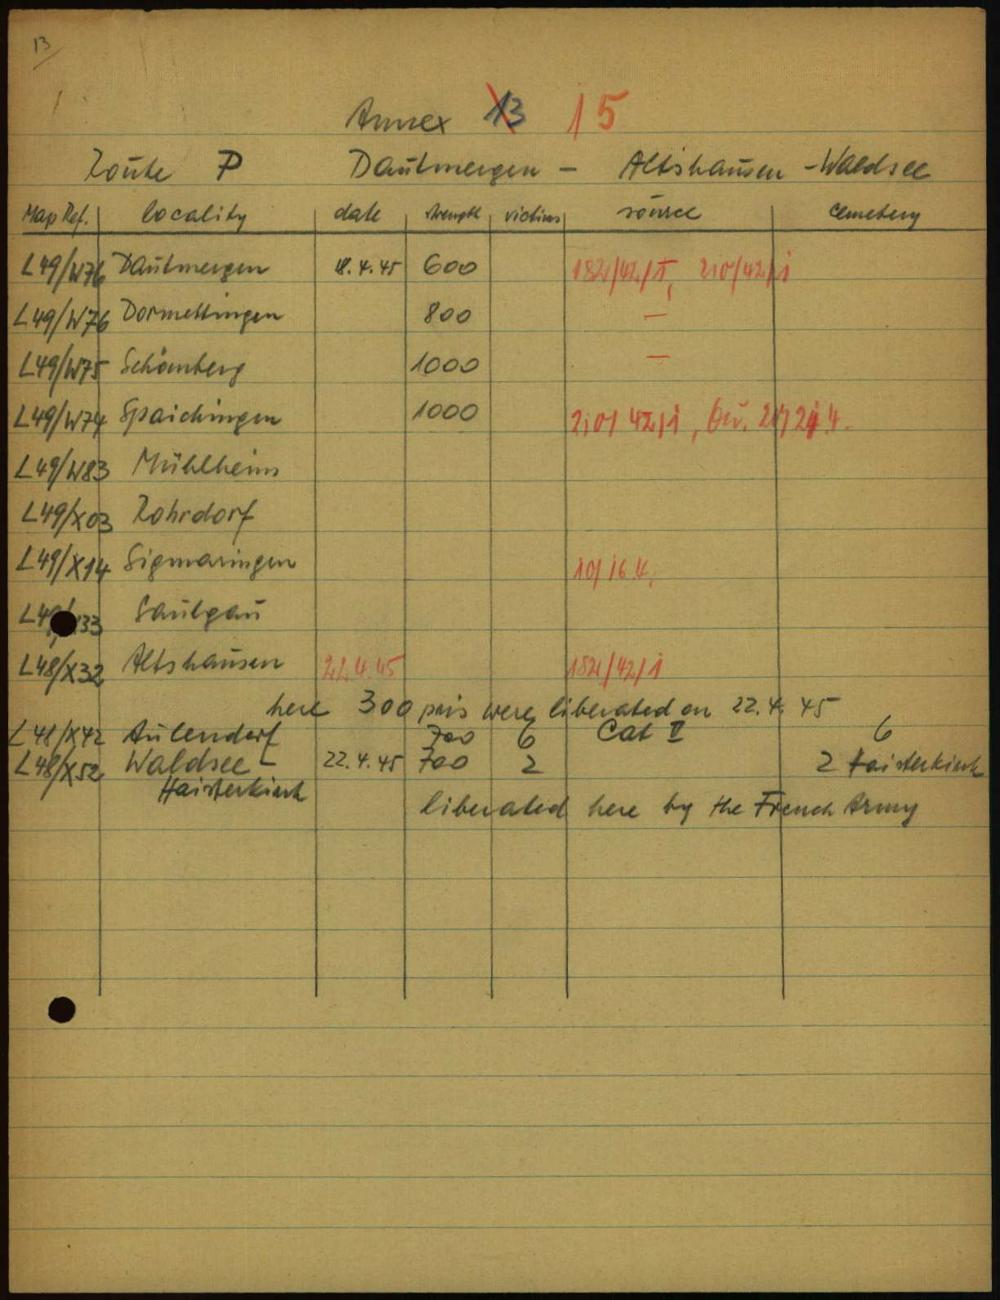 13
Annex 13 15
Route P Dautmergen – Altshausen – Waldsee
Map Ref. locality date strength victims source cemetery
L49/W76 Dautmergen 18.4.45 600 182/42/1, 210/42/1
L49/W76 Dormettingen 800 —
L49/W75 Schömberg 1000 —
L49/W74 Spaichingen 1000 210/42/1,
L49/W83 Mühlheim
L49/X03 Rohrdorf
L49/X14 Sigmaringen
Saulgau
L48/X32 Altshausen 22.4.45 182/42/1
here 300 pris were liberated on 22.4.45
L48/X42 Aulendorf 700 6 Cat V 6
L48/X52 Waldsee – 22.4.45 700 2 2 Haisterkirch
Haisterkirch
liberated here by the French Army